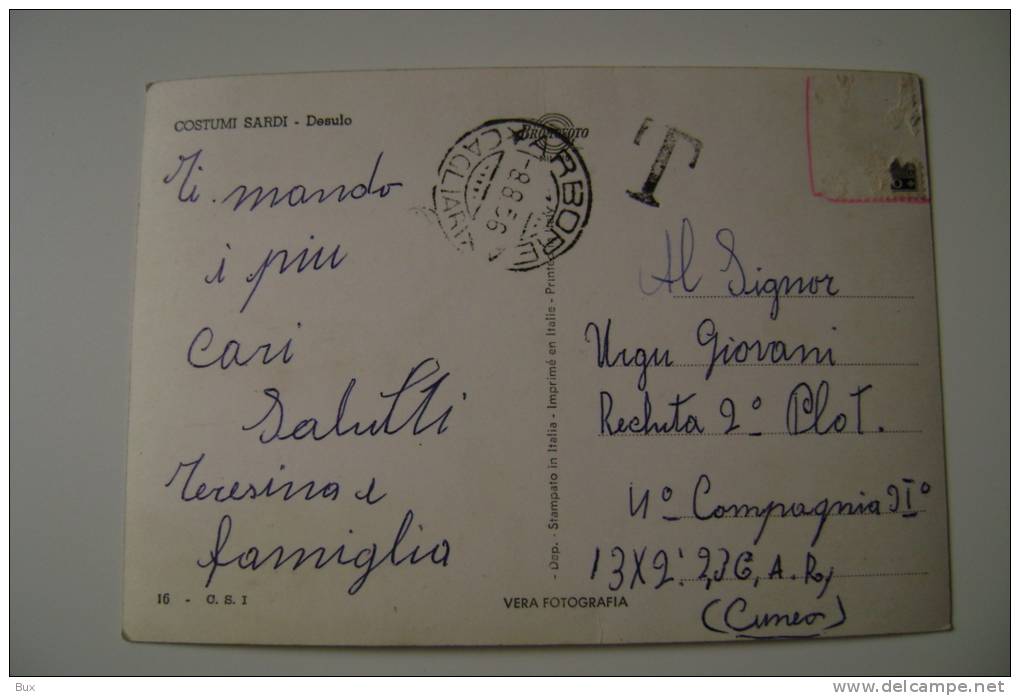 COSTUMI SARDI - Desulo
Ti mando
i piu
cari
Salutti
Teresina e
famiglia
16 - C. S. I
BROMOFOTO
ARBOREA
CAGLIARI
-8.8.56
T
- Dep. - Stampato in Italia - Imprimé en Italie - Printed in
VERA FOTOGRAFIA
Al Signor
Urgu Giovani
Rechuta 2º Plot.
4º Compagnia
(Cuneo)
Bux
delcampe.net